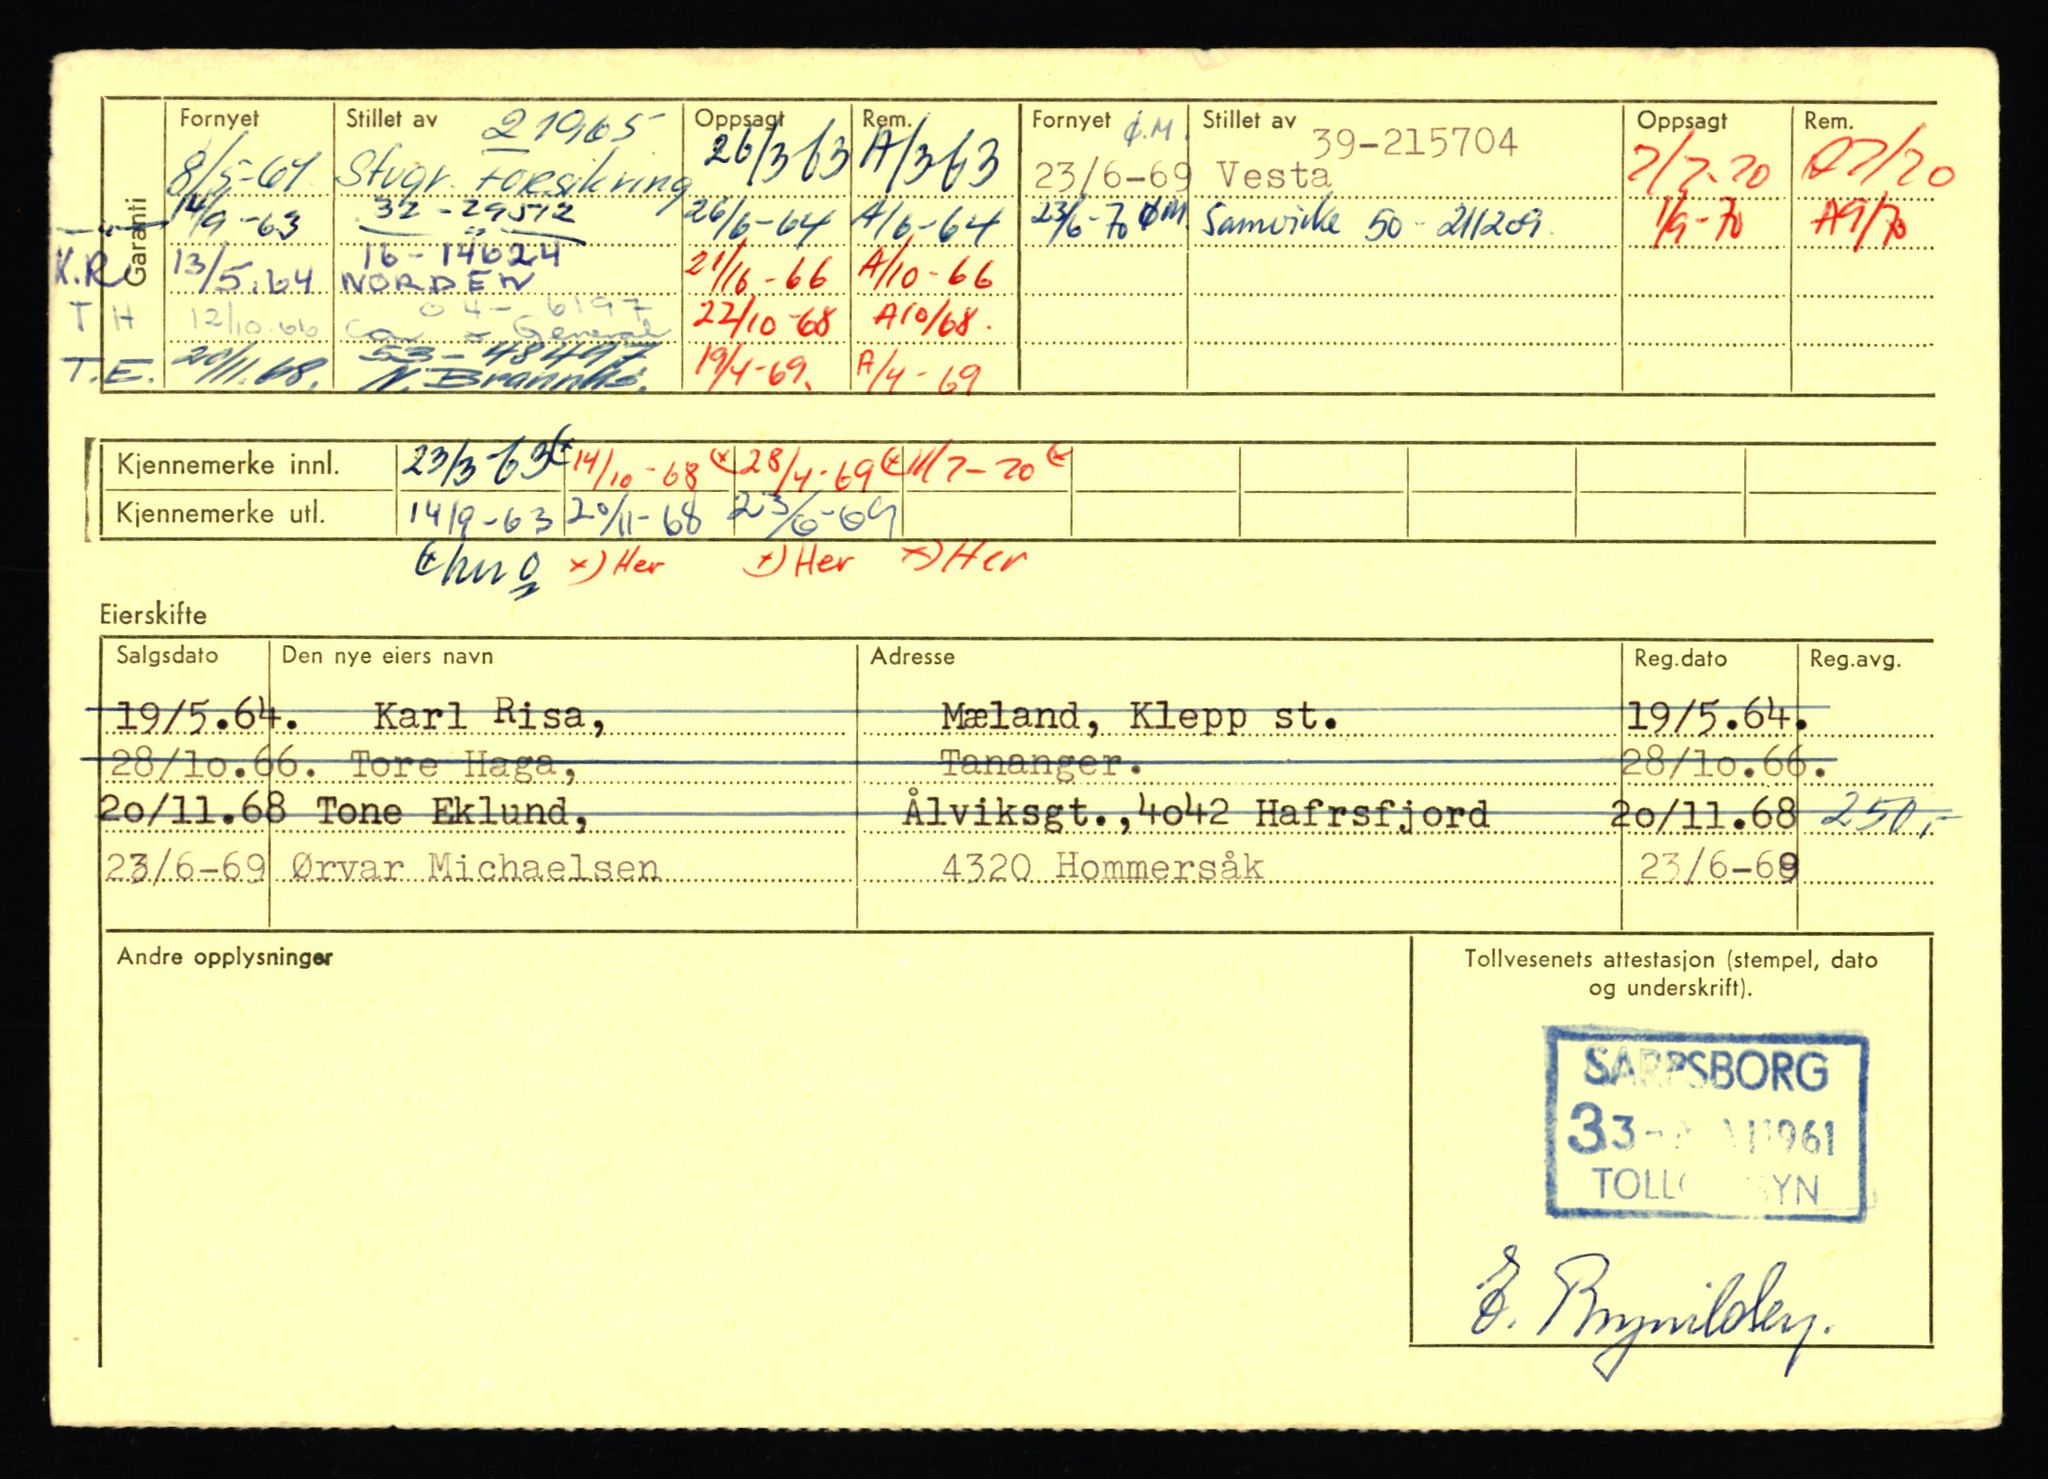 Garanti
Fornyet Stillet av Oppsagt Rem. Fornyet Stillet av Oppsagt Rem.
21965 Ø.M. 39-215704
8/5-61 Stvgr. Forsikring 26/3 63 A/3 63 23/6-69 Vesta 7/7-70 A7/70
14/9-63 32-29572 26/6-64 A/6-64 23/6-70 ØM Samvirke 50-211209 1/9-70 A9/70
K.R. 13/5.64 16-14624 21/10-66 A/10-66
NORDEN
T H 12/10.66 04-6197 22/10-68 A10/68.
General
T.E. 20/11.68. 53-48497 19/4-69. A/4-69
Kjennemerke innl. 23/3-63 14/10-68 28/4-69 11/7-70
Kjennemerke utl. 14/9-63 20/11-68 23/6-69
x) Her x) Her x) Her
Eierskifte
Salgsdato Den nye eiers navn Adresse Reg.dato Reg.avg.
19/5.64. Karl Risa, Mæland, Klepp st. 19/5.64.
28/10.66. Tore Haga, Tananger. 28/10.66.
20/11.68 Tone Eklund, Ålviksgt.,4042 Hafrsfjord 20/11.68 250,-
23/6-69 Ørvar Michaelsen 4320 Hommersåk 23/6-69
Andre opplysninger
Tollvesenets attestasjon (stempel, dato
og underskrift).
SARPSBORG
33- 1961
E.